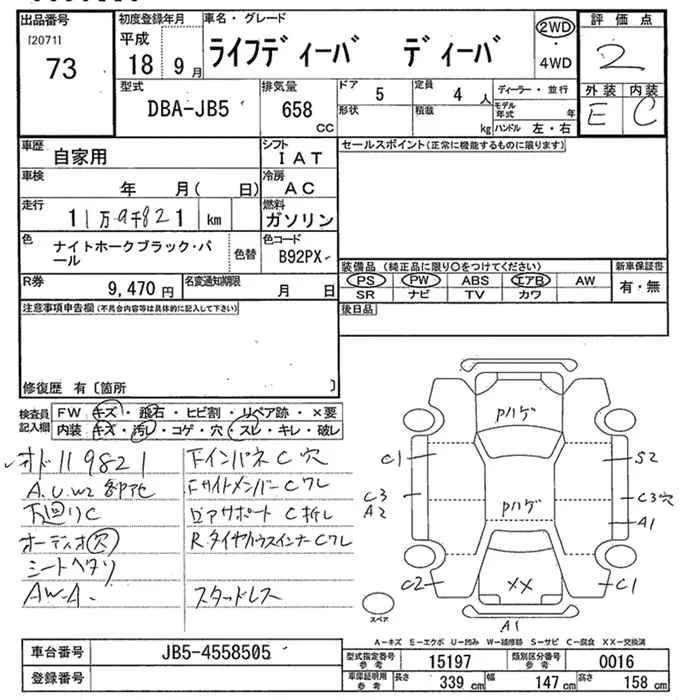 出品番号 初度登録年月 車名・グレード 評価点
[2071] 平成 ライフディーバ ディーバ 2WD 2
73 18 9月 ・4WD
型式 排気量 ドア 5 定員 4人 ディーラー・並行 外装 内装
DBA-JB5 658 cc 形状 積載 kg モデル年式 年 E C
ハンドル 左・右
車歴 自家用 シフト IAT セールスポイント(正常に機能するものに限ります)
車検 年 月( 日) 冷房 AC
走行 11万9千821 km 燃料 ガソリン
色 ナイトホークブラック・パール 色替 色コード B92PX 装備品(純正品に限り○をつけてください) 新車保証書
R券 9,470円 名変通知期限 月 日 PS PW ABS エアB AW 有・無
SR ナビ TV カワ
注意事項申告欄(不具合内容等は具体的に記入して下さい) 後日品
修復歴 有〔箇所 〕
検査員記入欄 FW キズ・飛石・ヒビ割・リペア跡・×要
内装 キズ・汚レ・コゲ・穴・スレ・キレ・破レ
オド119821 FインパネC穴
A.U.W2 FサイドメンバーCワレ
下回りC
オーディオ穴
シートヘタリ
AW-A. スタッドレス
Pハゲ
C1 S2
C3 A2 Pハゲ C3穴
A1
C2 XX C1
スペア A1
A-キズ E-エクボ U-凹み W-補修跡 S-サビ C-腐食 XX-交換済
車台番号 JB5-4558505 型式指定番号 参考 15197 類別区分番号 参考 0016
登録番号 車庫証明用 参考 長さ 339 cm 幅 147 cm 高さ 158 cm